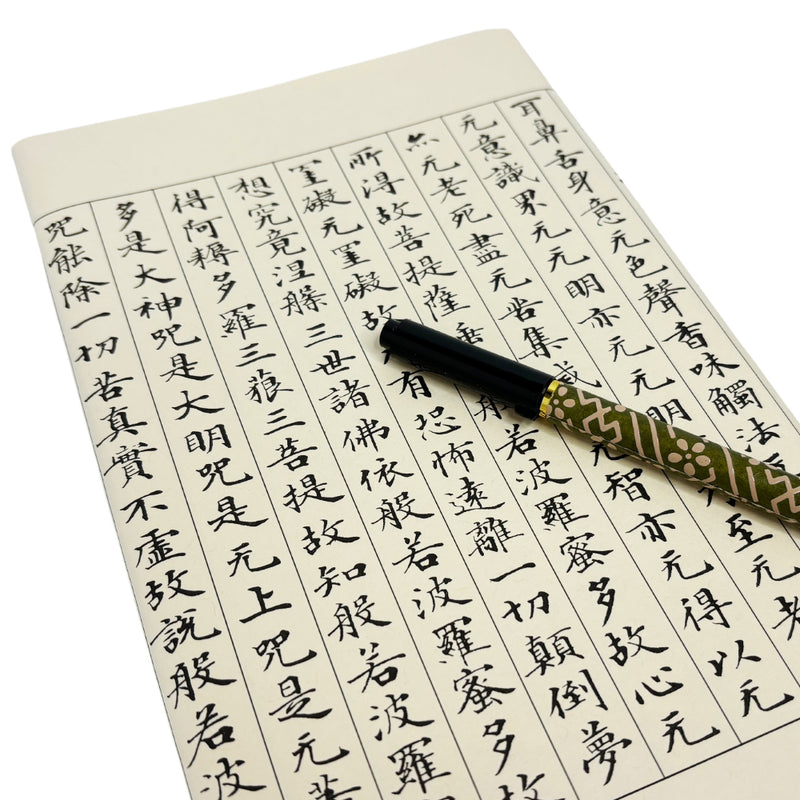 耳鼻舌身意无色聲香味觸法无
无意識界无无明亦无无明至无老
亦无老死盡无苦集无智亦无得以无
所得故菩提薩般若波羅蜜多故心无
罣礙无罣礙故有恐怖遠離一切顛倒夢
想究竟涅槃三世諸佛依般若波羅蜜多故
得阿耨多羅三藐三菩提故知般若波羅
多是大神咒是大明咒是无上咒是无等
咒能除一切苦真實不虛故說般若波